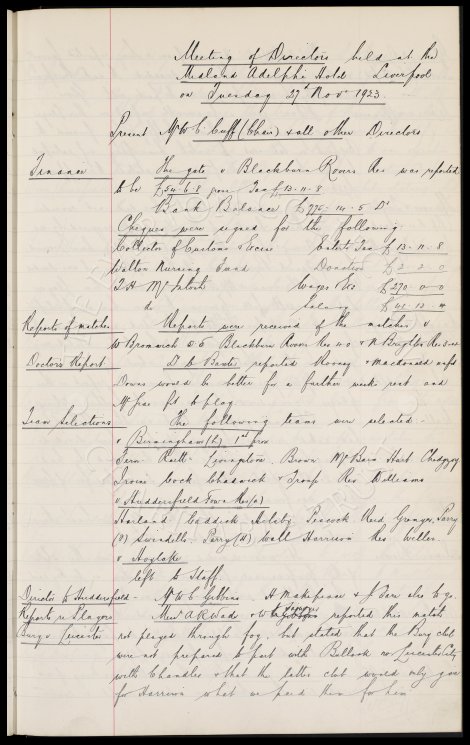 Meeting of Directors held at the
Midland Adelphi Hotel Liverpool
on Tuesday 27th Nov 1923.
Present Mr W. C. Cuff (Chair) & all other Directors
Finance The gate v Blackburn Rovers Res was reported
to be £54-6-8 Tax £13-11-8
Bank Balance £776-14-5 Dr
Cheques were signed for the following:
Collector of Customs & Excise Entert Tax £13-11-8
Walton Nursing Fund Donation £2 2 0
T. H. McIntosh Wages Etc £270 0-0
do Salary
Reports of matches Reports were received of the matches v
W Bromwich Blackburn Rovers Res & N Brighton Res
Doctor's Report Dr C Baxter reported Rooney & Macdonald unfit
Downs would be better for a further weeks rest and
fit to play.
Team Selections The following teams were selected -
v Birmingham (h) 1st prox
Fern Raitt Livingstone Brown McBain Hart Chedgzoy
Irvine Cock Chadwick & Troup Res Williams
v Huddersfield Town Res (a)
Harland Caddick Peacock Reid Grenyer Parry
(F) Swindells Parry (H) Wall Harrison Res Weller
v Hoylake
left to Staff.
Director to Huddersfield - Mr W. C. Gibbins. H Makepeace & J Tarn also to go.
Reports re Players Messrs A R Wade & W reported this match
Bury & Leicester not played through fog, but stated that the Bury club
were not prepared to part with Bullock nor Leicester City
with Chandler & that the latter club would only give
for Harrison what we paid them for him